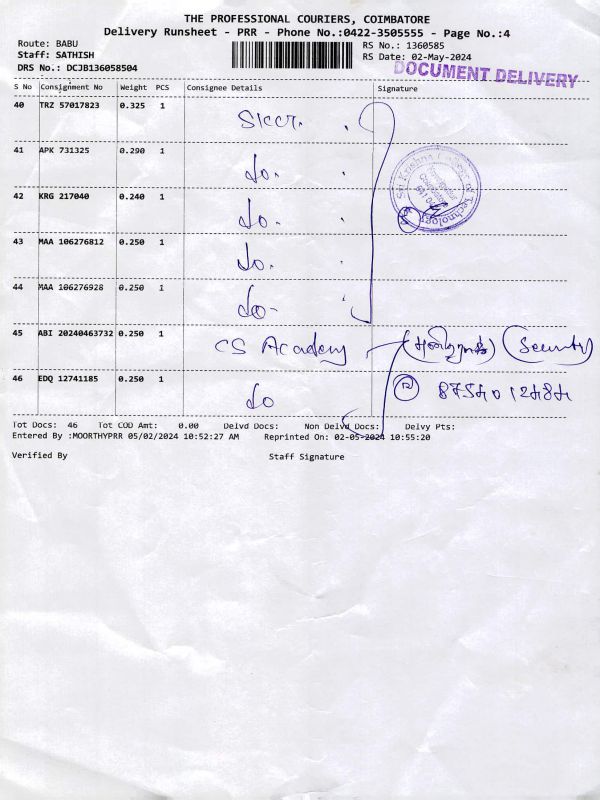 THE PROFESSIONAL COURIERS, COIMBATORE
Delivery Runsheet - PRR - Phone No.:0422-3505555 - Page No.:4
Route: BABU
Staff: SATHISH
DRS No.: DCJB136058504
RS No.: 1360585
RS Date: 02-May-2024
DOCUMENT DELIVERY
S No Consignment No Weight PCS Consignee Details Signature
40 TRZ 57017823 0.325 1
41 APK 731325 0.290 1 do.
Sri Krishna College of Technology
Coimbatore
42 KRG 217040 0.240 1 do.
43 MAA 106276812 0.250 1 do.
44 MAA 106276928 0.250 1 do-
45 ABI 20240463732 0.250 1 CS Academy (Security)
46 EDQ 12741185 0.250 1 do
Tot Docs: 46 Tot COD Amt: 0.00 Delvd Docs: Non Delvd Docs: Delvy Pts:
Entered By :MOORTHYPRR 05/02/2024 10:52:27 AM Reprinted On: 02-05-2024 10:55:20
Verified By Staff Signature